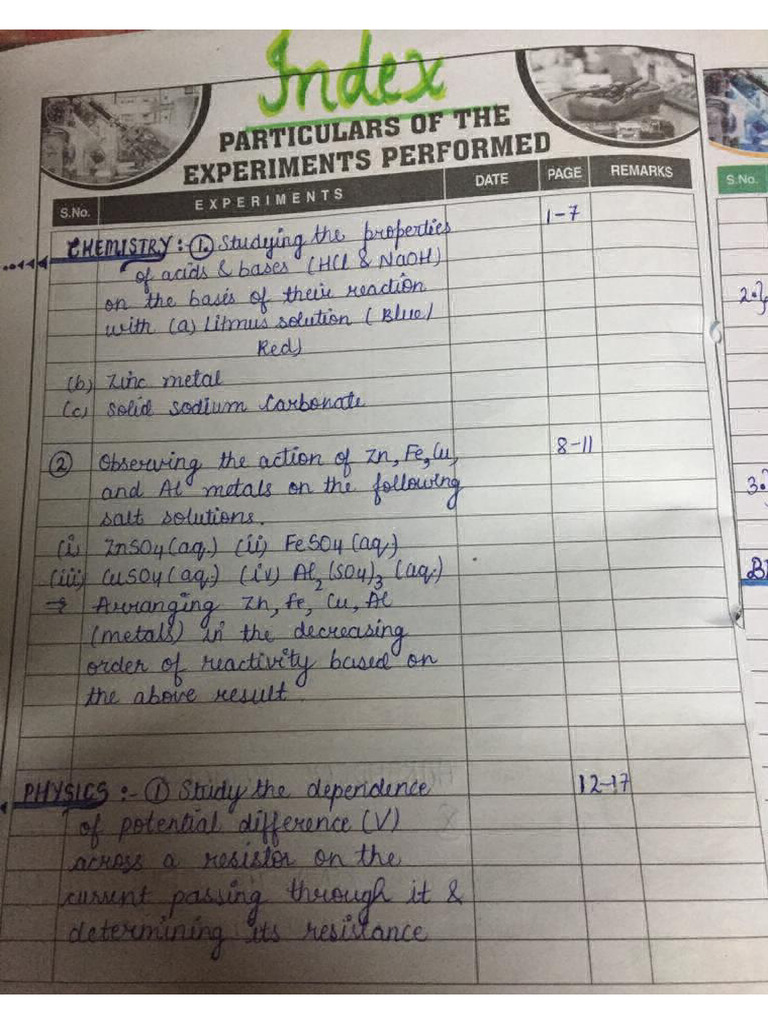 Index
PARTICULARS OF THE
EXPERIMENTS PERFORMED
S.No. EXPERIMENTS DATE PAGE REMARKS
CHEMISTRY:- ① Studying the properties 1-7
of acids & bases (HCl & NaOH)
on the basis of their reaction
with (a) Litmus solution (Blue/
Red)
(b) Zinc metal
(c) Solid sodium Carbonate
② Observing the action of Zn, Fe, Cu, 8-11
and Al metals on the following
salt solutions.
(i) ZnSO4 (aq.) (ii) FeSO4 (aq.)
(iii) CuSO4 (aq.) (iv) Al2(SO4)3 (aq.)
⇒ Arranging Zn, Fe, Cu, Al
(metals) in the decreasing
order of reactivity based on
the above result
PHYSICS :- ① Study the dependence 12-17
of potential difference (V)
across a resistor on the
current passing through it &
determining its resistance
S.No.
2.
3.